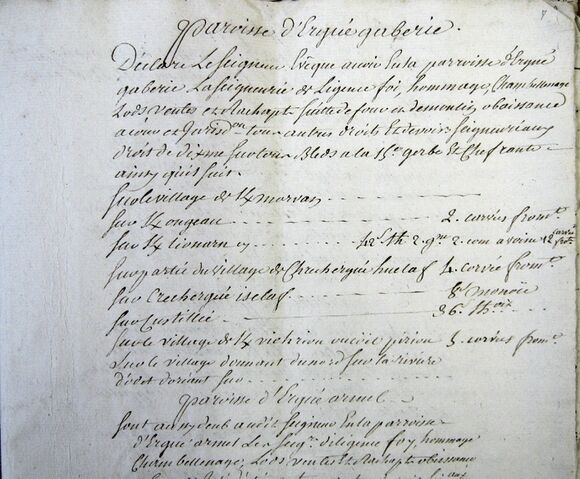 parroisse d'Ergué gaberic.
Declare Le Seigneur Evêque avoir En la parroisse d'Ergué
gaberic La Seigneurie de Ligence foi, hommage, Chambellenage
Lods, ventes et Rachapt suitte de four et de moulin, obeissance
a cour et Jurisd.on tous autres droits Et devoirs Seigneuriaux
droit de dixme sur tous Bleds a la 15.e gerbe Et Chefrante
ainsy qu'il suit
sur le village de K/morvan
sur K/ongeau 2. corvées from.t
sur K/lionarn 2. com avoine 12
sur partie du village de Crechergué huelaf 4. corvée from.t
sur Crecherguéiselaf 8.s monoie
sur Custillic 36.s th.oix
sur le village de K/ 5. corvées from.t
sur le village donnant du nord sur la riviere
d'odet d'oriant sur
parroisse d'Ergué armel
sont aussy deub audit seigneur En la parroisse
d'Ergué armel Le seig.r de ligence foy, hommage
Chambellenage, Lods, ventes Et Rachapt obeissance